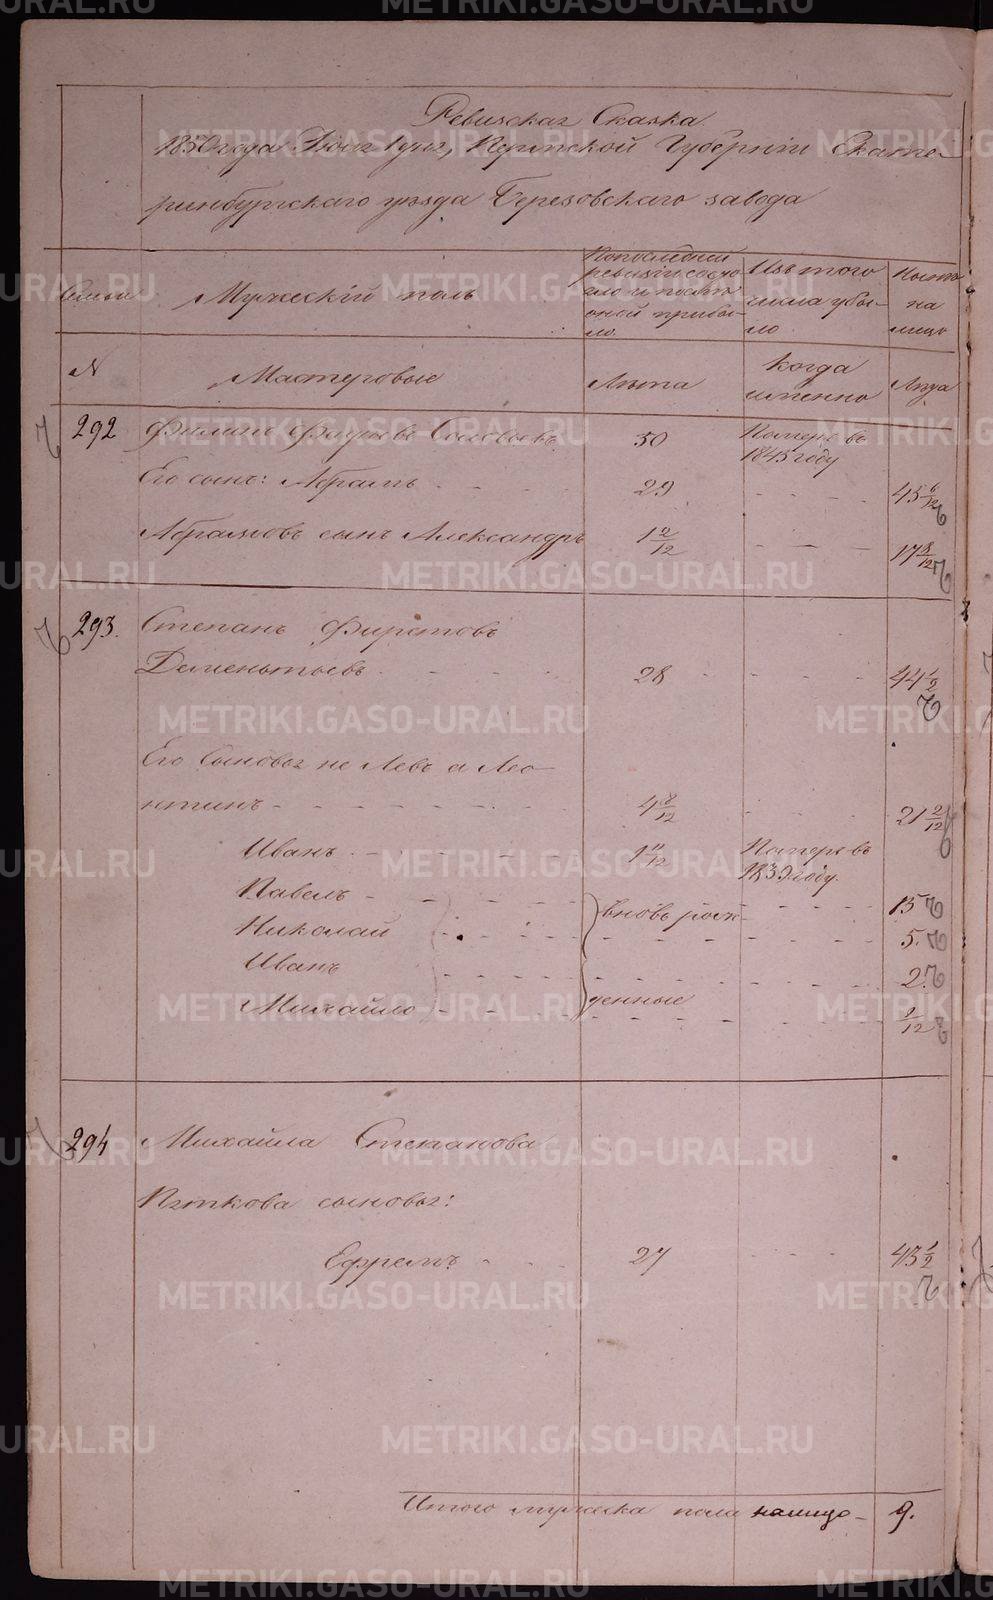 Ревизская Сказка
1850 года Пермской Губернiи Екате-
ринбургскаго уѣзда Березовскаго завода
Семьи
Мужескiй полъ
По последней
ревизiи состо-
яло и после
оной прибы-
ло
Изъ того
числа убы-
ло
Ныне
на
лицо
N
Мастеровые
Лѣта
когда
именно
Лѣта
292
Филипъ Соловьевъ
50
Померъ въ
1845 году
Его сынъ: Абрамъ
29
45 6/12
Абрамовъ сынъ Александръ
1 2/12
17 8/12
293.
Степанъ Фирстовъ
Дементьевъ
28
44 1/2
Его Сыновья не Левъ а Лео-
нтинъ
4 8/12
21 2/12
Иванъ
1 11/12
Померъ въ
1839 году.
Павелъ
вновь рож-
15
Николай
5.
Иванъ
2
Михайло
денные
1/12
294
Михайла Степанова
Пяткова сыновья:
Ефремъ
27
43 1/2
Итого мужеска пола налицо
9.
METRIKI.GASO-URAL.RU